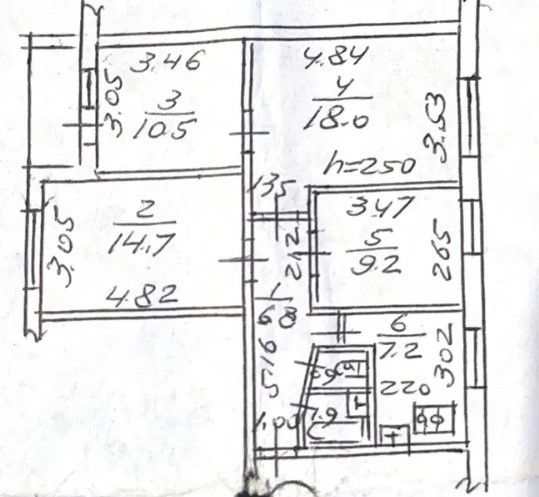 3.46
3.05
3
10.5
4.84
4
18.0
3.53
h=250
135
2
14.7
3.05
4.82
3.47
5
9.2
265
2.12
1
6.8
5.16
6
7.2
220
302
1.00